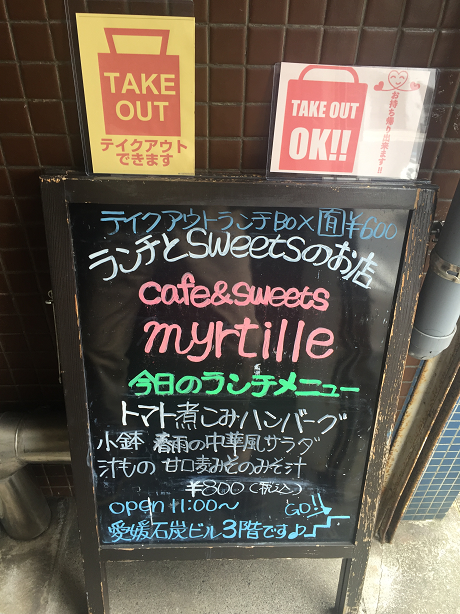 TAKE
OUT
テイクアウト
できます
TAKE OUT
OK!!
お持ち帰り出来ます!!
テイクアウトランチBOX ¥600
ランチとsweetsのお店
cafe&sweets
myrtille
今日のランチメニュー
トマト煮こみハンバーグ
小鉢 春雨の中華風サラダ
汁もの 甘口麦みそのみそ汁
¥800(税込)
open 11:00〜
GO!!
愛媛石炭ビル3階です♪